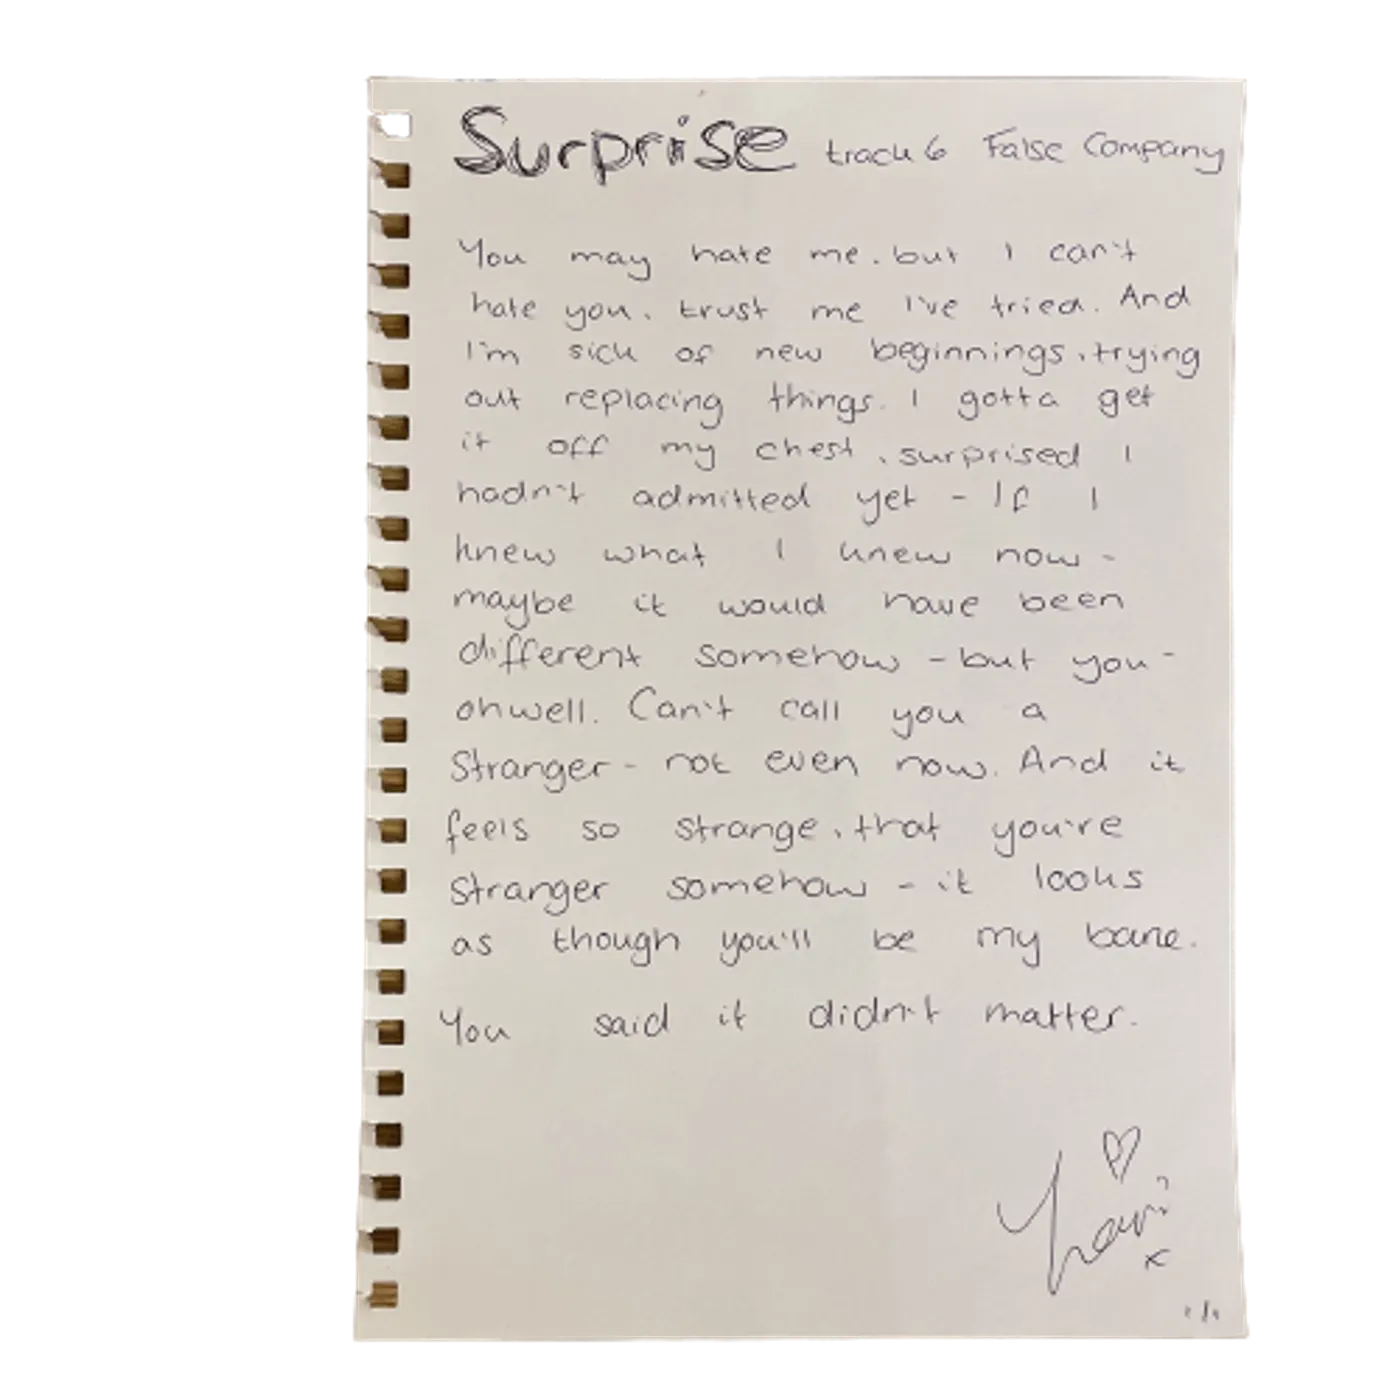 Surprise track 6 False Company
You may hate me. but I can't
hate you. trust me I've tried. And
I'm sick of new beginnings. trying
out replacing things. I gotta get
it off my chest. surprised I
hadn't admitted yet - If I
knew what I knew now -
maybe it would have been
different somehow - but you -
ohwell. Can't call you a
Stranger - not even now. And it
feels so strange. that you're
stranger somehow - it looks
as though you'll be my bane.
You said it didn't matter.
x